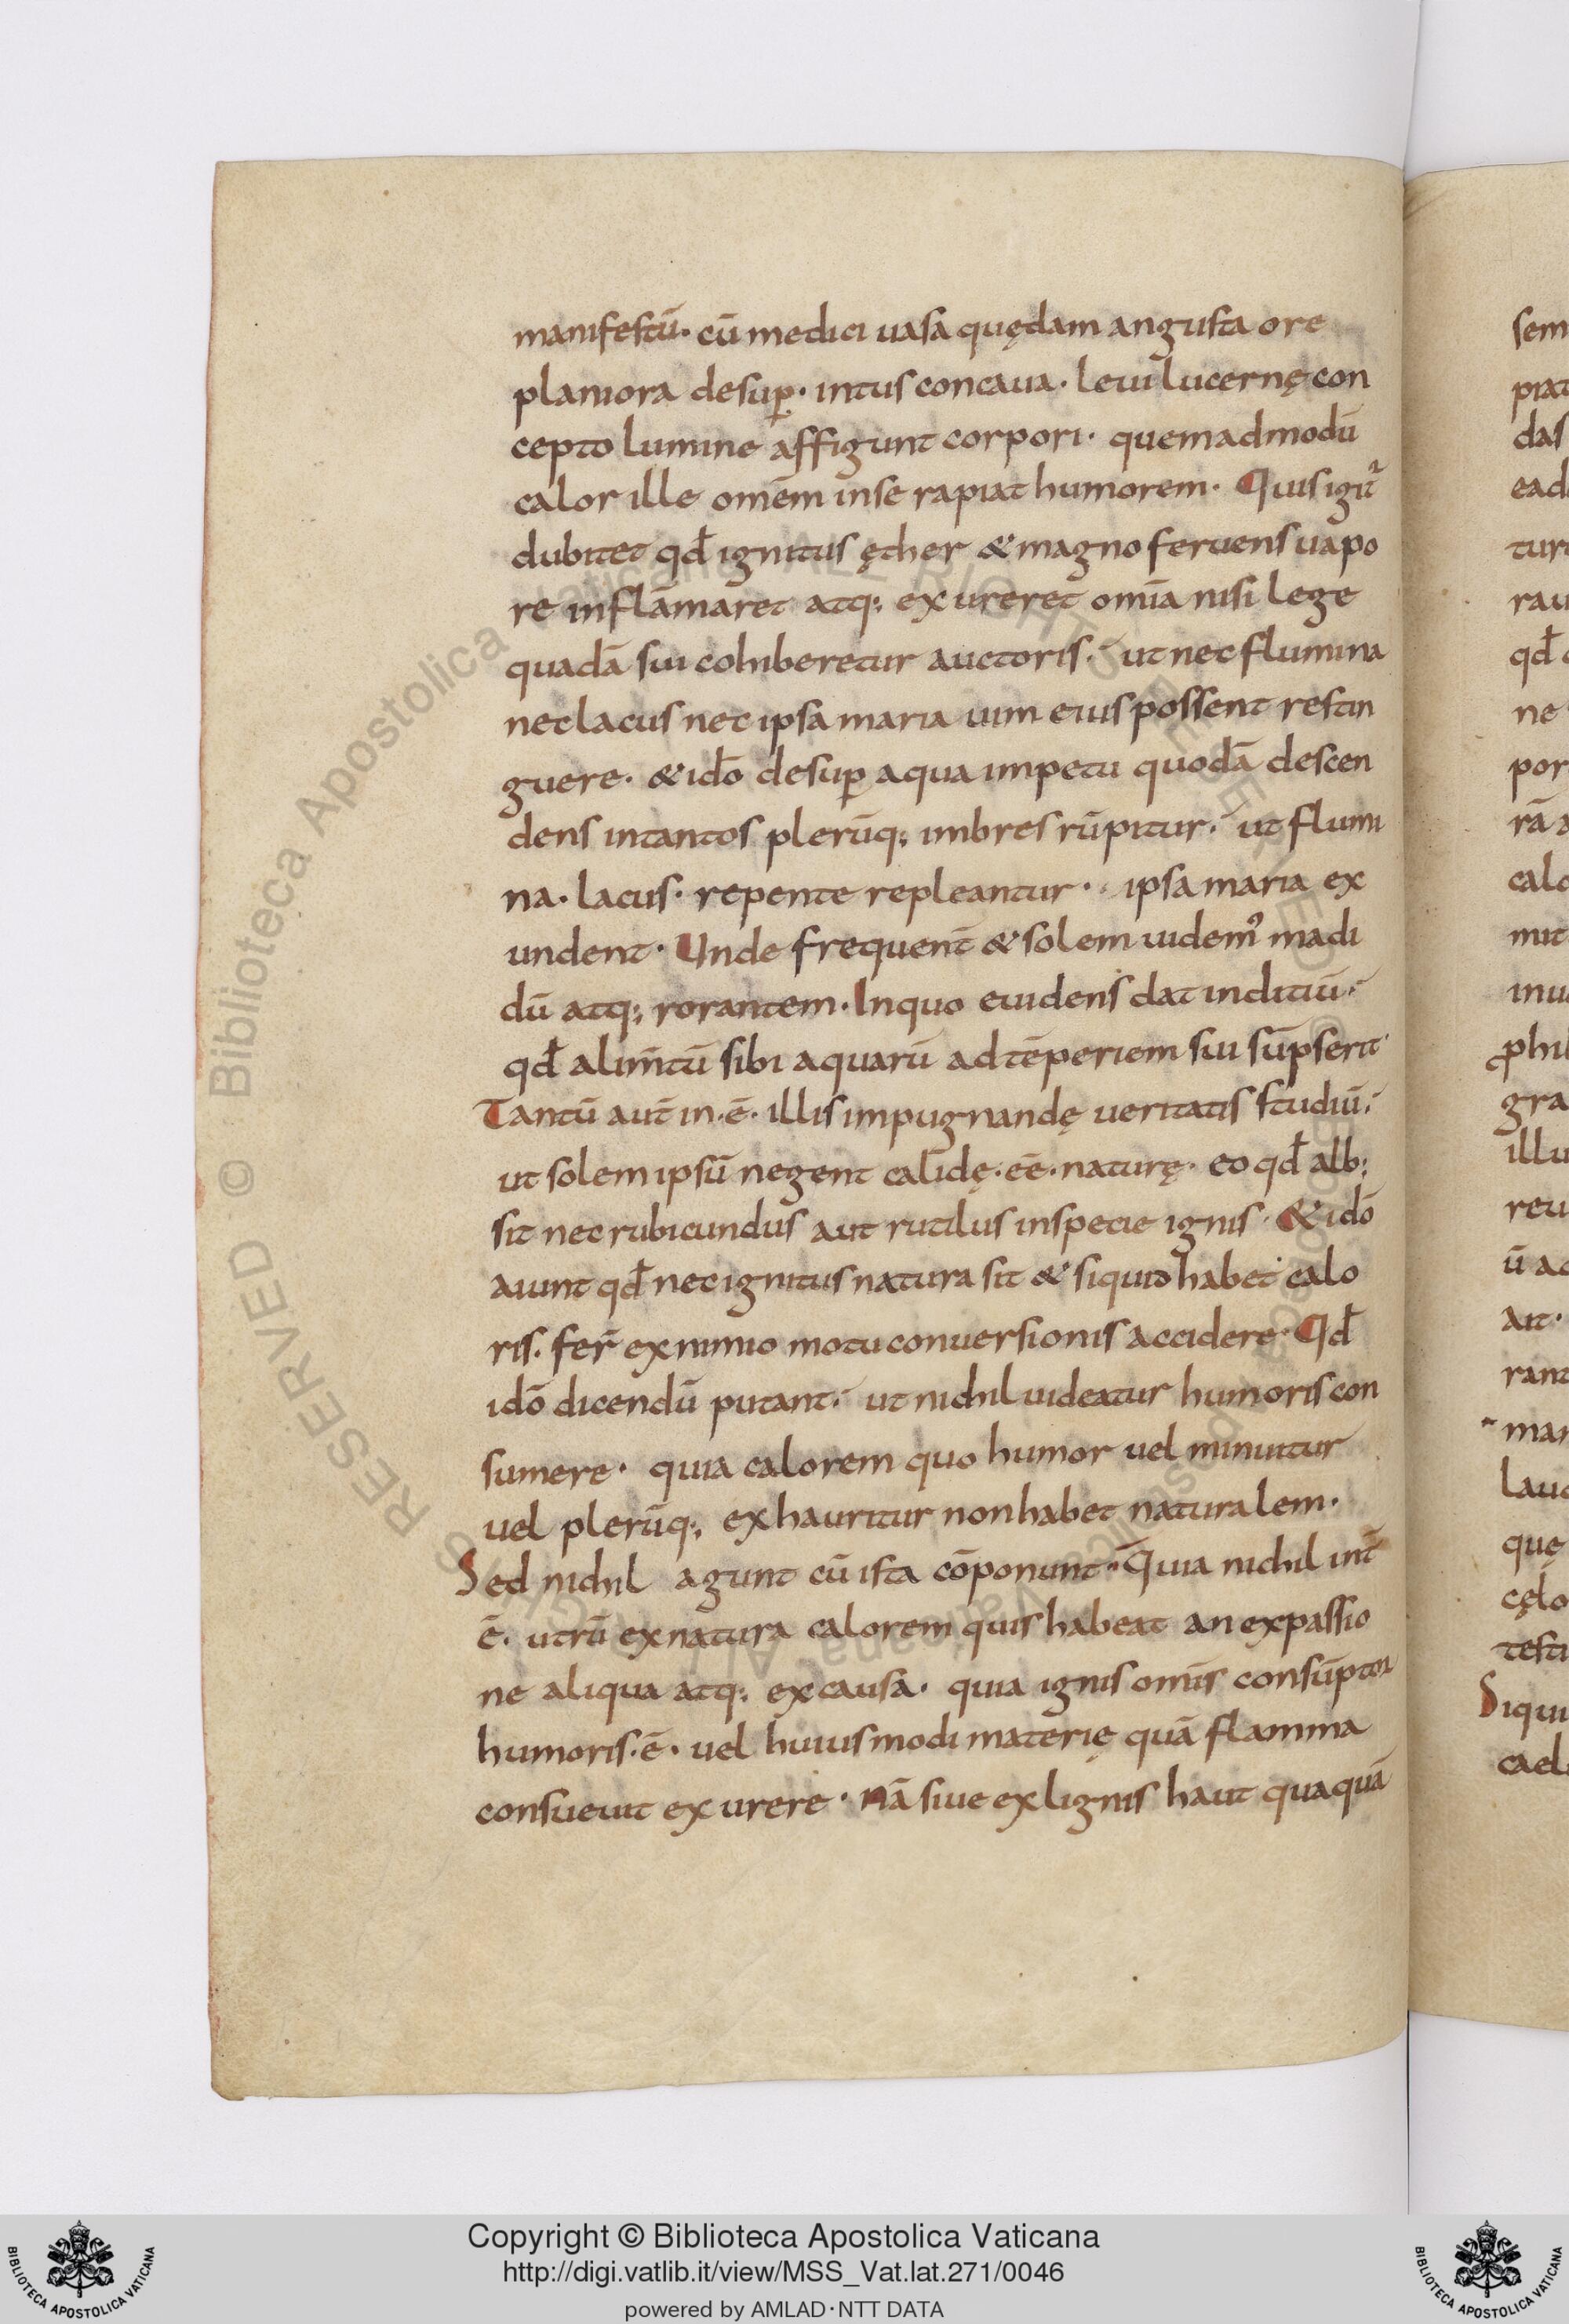 manifestū· cū medici uasa quędam angusta ore
planiora desup̱· intus concaua· leui lucernę con
cepto lumine affigunt corpori· quemadmodū
calor ille omēm inse rapiat humorem· Quis igit᷑
dubitet qđ ignitus ęther & magno feruens uapo
re inflāmaret atq; exureret omīa nisi lege
quadā sui cohiberetur auctoris· ut nec flumina
nec lacus nec ipsa maria uim eius possent restin
guere· & idō desup̱ aqua impetu quodā descen
dens intantos plerūq; imbres rūpitur· ut flumi
na· lacus· repente repleantur· ipsa maria ex
undent· Unde frequent̄ & solem uidemꝰ madi
dū atq; rorantem· Inquo euidens dat inditiū·
qđ alim̄tū sibi aquarū ad tēperiem sui sūpserit·
Tantū aut̄ in·ē· illis impugnandę ueritatis studiū·
ut solem ipsū negent calidę·eē·naturę· eo qđ alb;
sit nec rubicundus aut rutilus inspecie ignis· & idō
aiunt qđ nec ignitus natura sit & siquid habet calo
ris· fer̄ ex nimio motu conuersionis accidere· Qđ
idō dicendū putant· ut nichil uideatur humoris con
sumere· quia calorem quo humor uel minuitur
uel plerūq; exhauritur non habet naturalem·
Sed nichil agunt cū ista cōponunt· Quia nichil int̄
ē· utrū ex natura calorem quis habeat an expassio
ne aliqua atq; ex causa· quia ignis omīs consūptor
humoris·ē· uel huiusmodi materię quā flamma
consueuit exurere· Nā siue ex lignis haut quaquā
sem
piat
das
ead
tur
rau
qđ
ne
por
rā a
calo
mit
inu
phil
gra
illu
reu
ū ac
ait·
rant
mar
lau
quę
cęlo
testi
Siqui
cael
© Biblioteca Apostolica Vaticana ALL RIGHTS RESERVED
Copyright © Biblioteca Apostolica Vaticana
http://digi.vatlib.it/view/MSS_Vat.lat.271/0046
powered by AMLAD·NTT DATA
BIBLIOTECA APOSTOLICA VATICANA
BIBLIOTECA APOSTOLICA VATICANA